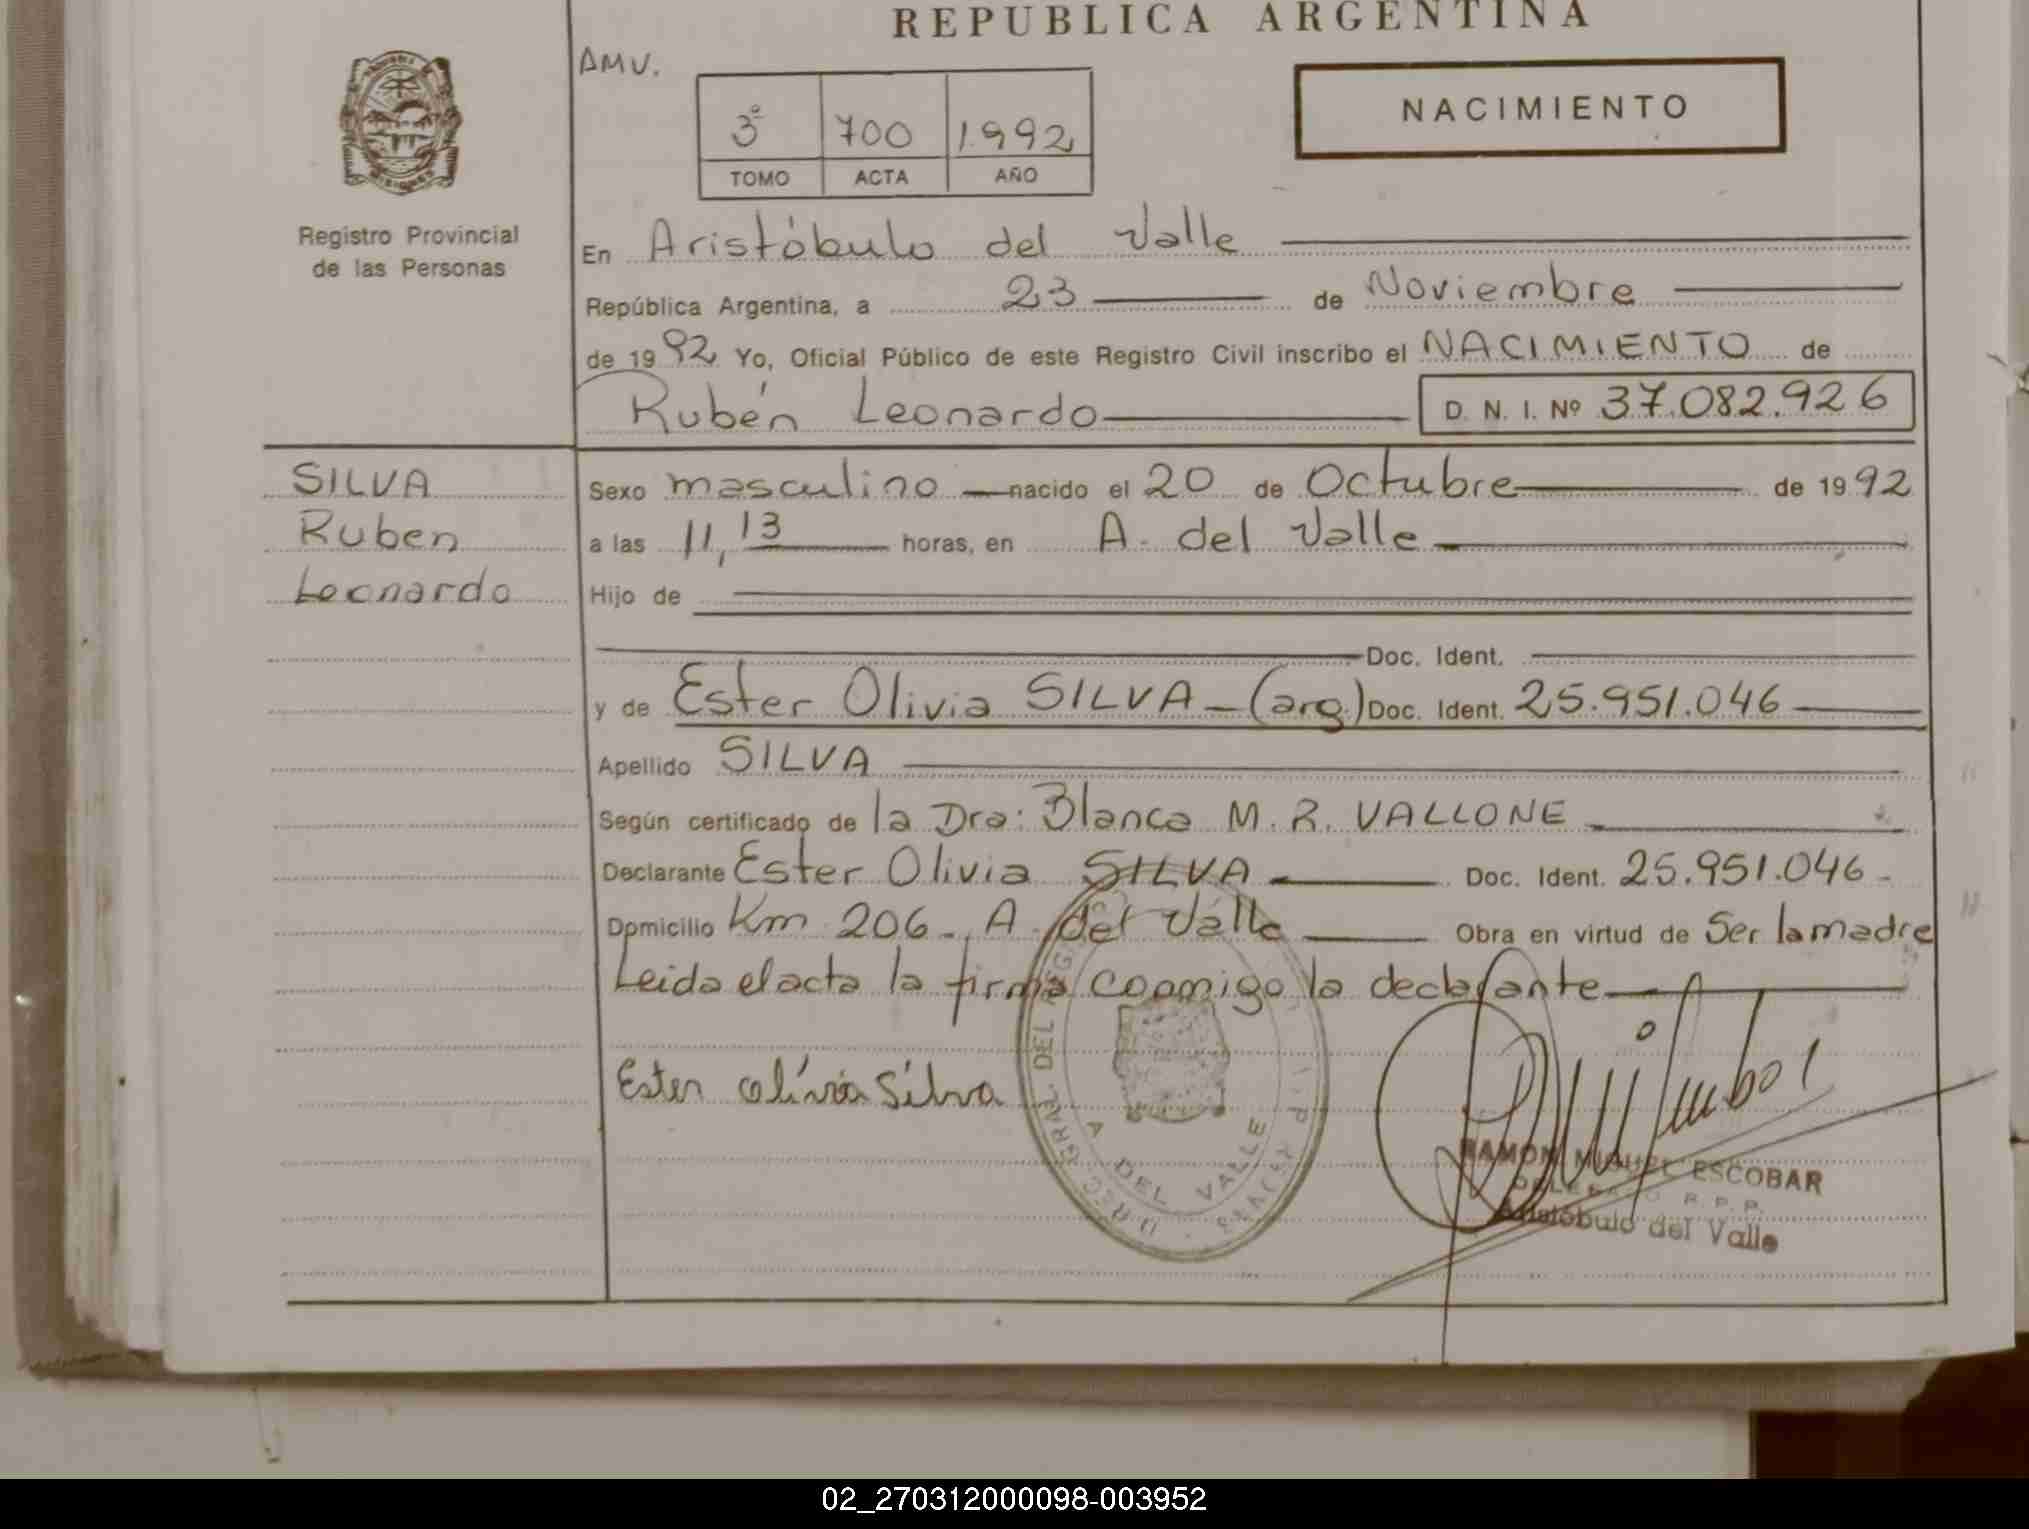 REPUBLICA ARGENTINA
AMV.
3º 700 1.992
TOMO ACTA AÑO
NACIMIENTO
Registro Provincial
de las Personas
En Aristóbulo del Valle
República Argentina, a 23 de Noviembre
de 1992 Yo, Oficial Público de este Registro Civil inscribo el NACIMIENTO de
Rubén Leonardo D. N. I. Nº 37.082.926
SILVA
Ruben
Leonardo
Sexo masculino nacido el 20 de Octubre de 1992
a las 11,13 horas, en A. del Valle
Hijo de
Doc. Ident.
y de Ester Olivia SILVA - (arg.) Doc. Ident. 25.951.046
Apellido SILVA
Según certificado de la Dra: Blanca M. R. VALLONE
Declarante Ester Olivia SILVA Doc. Ident. 25.951.046 -
Domicilio Km 206 - A. del Valle Obra en virtud de Ser la madre
Leida el acta la firma conmigo la declarante
Ester Olivia Silva
A DEL VALLE
RAMON MIGUEL ESCOBAR
DELEGADO R. P. P.
Aristóbulo del Valle
02_270312000098-003952